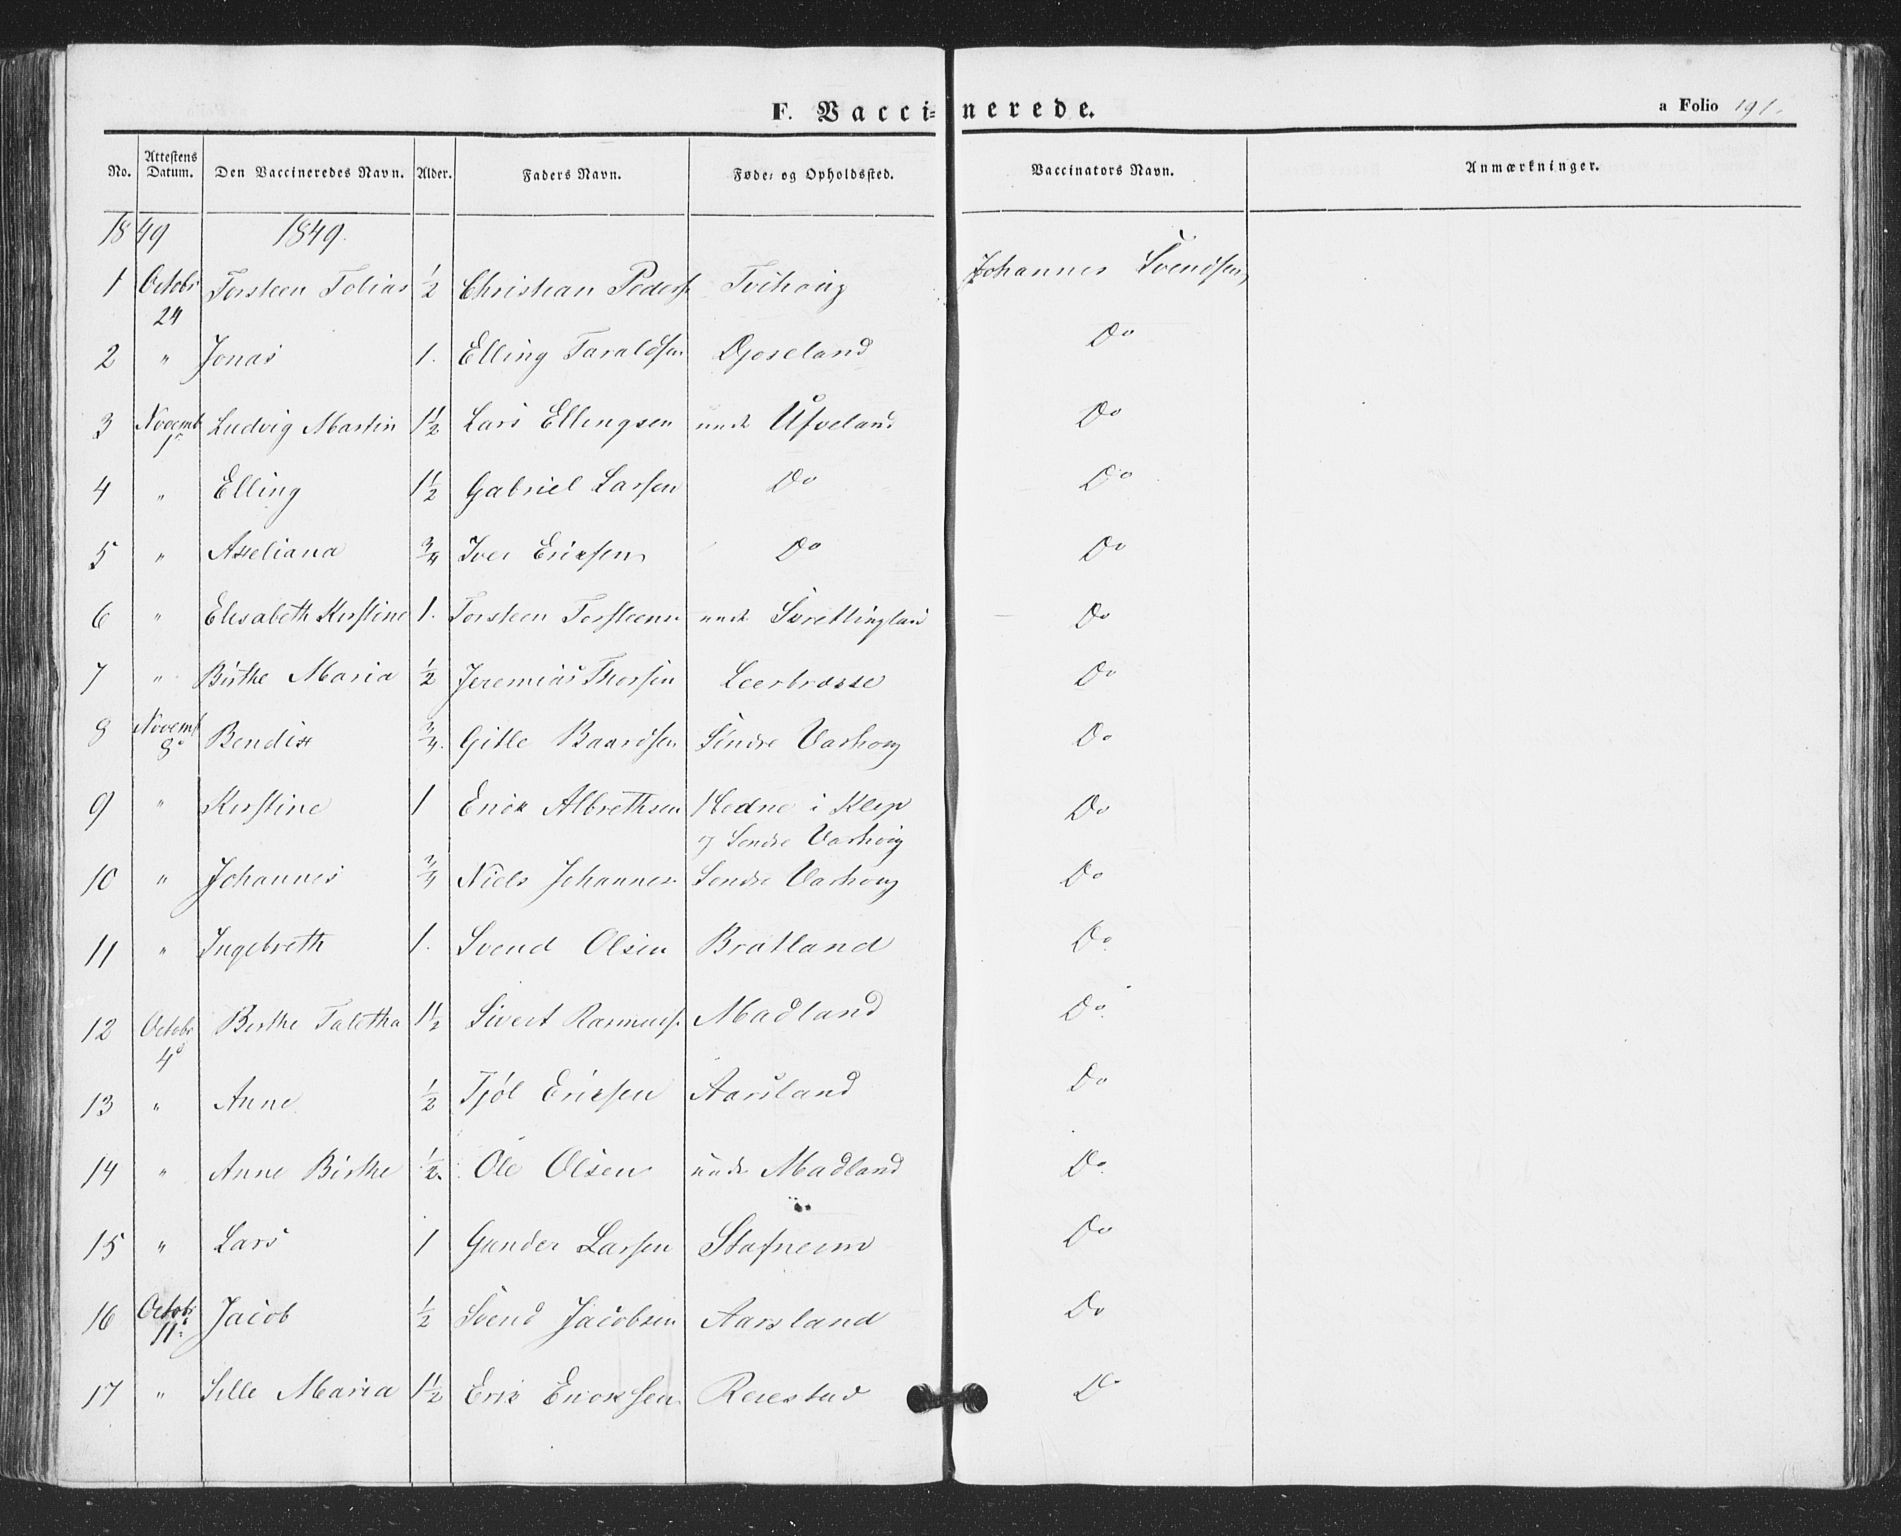 F. Vaccinerede.
a Folio 191.
No. Attestens Datum. Den Vaccineredes Navn. Alder. Faders Navn. Føde- og Opholdssted. Vaccinators Navn. Anmærkninger.
1849 1849.
1 Octobr 24 Torsteen Tobias ½ Christian Peders Tvihoug Johannes Svendsen
2 " Jonas 1. Elling Taraldsen Djoseland Do
3 Novemb 1 Ludvig Martin 1½ Lars Ellingsen unde Ufveland Do
4 " Elling 1½ Gabriel Larsen Do Do
5 " Axeliana ¾ Iver Ericksen Do Do
6 " Elisabeth Kirstine 1. Torsteen Torsteens unde Do
7 " Birthe Maria ½ Jeremias Thorsen Leerbrække Do
8 Novemb 8 Bendix ¾. Gitle Baardsen Søndre Varhoug Do
9 " Kirstine 1 Erick Albrethsen Hodne i Klep Do
og Søndre Varhoug
10 " Johannes ¾ Niels Johannes Søndre Varhoug Do
11 " Ingebreth 1. Svend Olsen Bratland Do
12 Octobr 4 Birthe Taletha 1½ Sivert Rasmuss. Madland Do
13 " Anne ½ Tjøl Ericksen Aarsland Do
14 " Anne Birthe ½. Ole Olsen unde Madland Do
15 " Lars 1 Gunder Larsen Stofneim Do
16 Octobr 11 Jacob ½ Svend Jacobsen Aarsland Do
17 " Sille Maria 1½ Erik Ericksen Reiestad Do